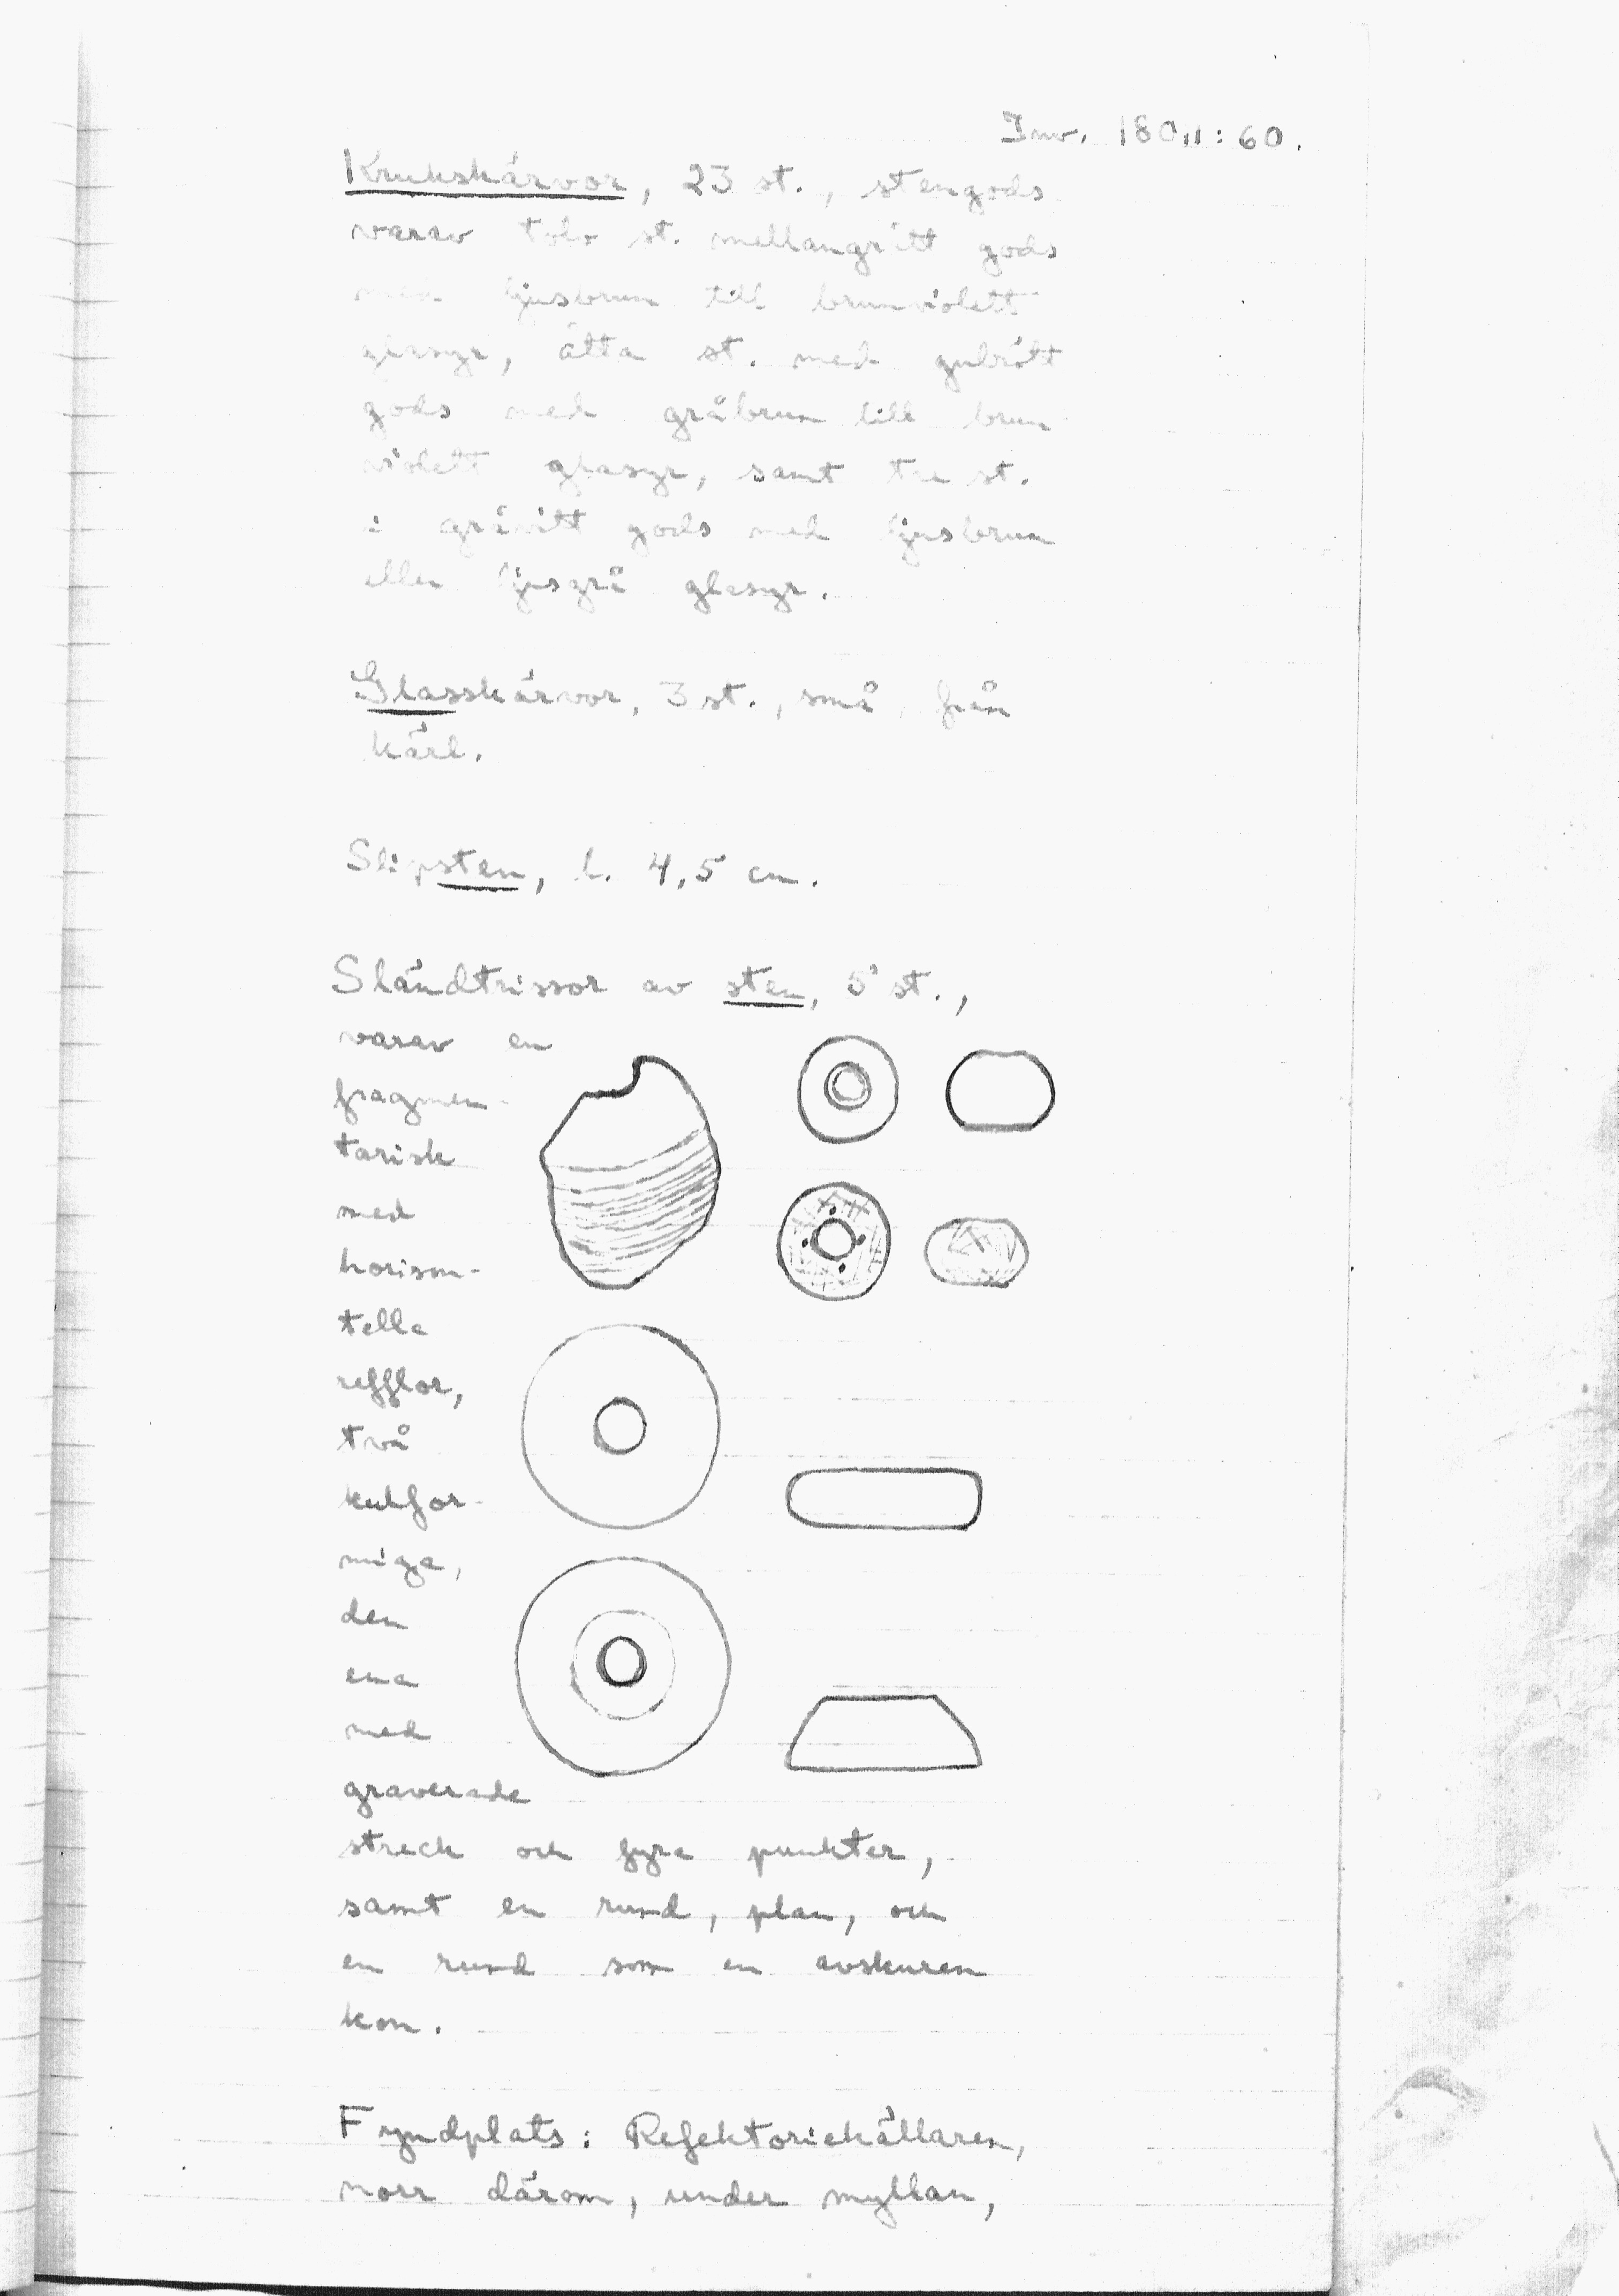 Inv. 180,,:60.
Krukskärvor, 23 st., stengods
varav tolv st. mellangrått gods
med ljusbrun till brunviolett
glasyr, åtta st. med gulvitt
gods med gråbrun till brun
violett glasyr, samt tre st.
i gråvitt gods med ljusbrun
eller ljusgrå glasyr.
Glasskärvor, 3 st., små, från
kärl.
Slipsten, l. 4,5 cm.
Sländtrissor av sten, 5 st.,
varav en
fragmen-
tarisk
med
horison-
tella
refflor,
två
kulfor-
miga,
den
ena
med
graverade
streck och fyra punkter,
samt en rund, plan, och
en rund som en avskuren
kon.
Fyndplats: Refektoriekällaren,
norr därom, under myllan,